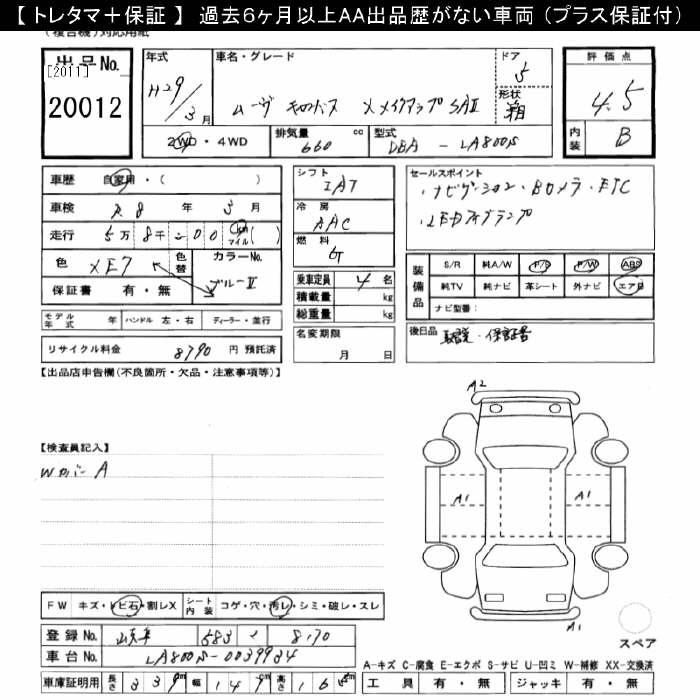 【 トレタマ＋保証 】 過去６ヶ月以上ＡＡ出品歴がない車両（プラス保証付）
(複合機)対応用紙
出品No.
[2011]
20012
年式
H29/3月
車名・グレード
ムーヴ キャンバス Xメイクアップ SAⅡ
ドア
5
形状
箱
評価点
4.5
内装
B
2WD・4WD
排気量 660 cc
型式 DBA - LA800S
車歴 自家用・( )
車検 R8年 3月
走行 5万8千200 km マイル( )
色 XE7
色替
カラーNo.
ブルーⅡ
保証書 有・無
シフト
IAT
冷房
AAC
燃料
G
乗車定員 4名
積載量 kg
総重量 kg
セールスポイント
・ナビゲーション・Bカメラ・ETC
・LEDフォグランプ
装備品
S/R 純A/W P/S P/W ABS
純TV 純ナビ 革シート 外ナビ エアB
ナビ型番：
モデル年式 年 ハンドル 左・右 ディーラー・並行
リサイクル料金 8790 円 預託済
名変期限
月 日
後日品
取説・保証書
【出品店申告欄(不良箇所・欠品・注意事項等)】
【検査員記入】
Wカバー A
A2
A1
A1
A1
スペア
FW キズ・トビ石・割レX
シート内装 コゲ・穴・汚レ・シミ・破レ・スレ
登録No. 岐阜 583 8170
車台No. LA800S-0039934
A-キズ C-腐食 E-エクボ S-サビ U-凹ミ W-補修 XX-交換済
車庫証明用 長さ 339 cm 幅 147 cm 高さ 165 cm
工具 有・無 ジャッキ 有・無